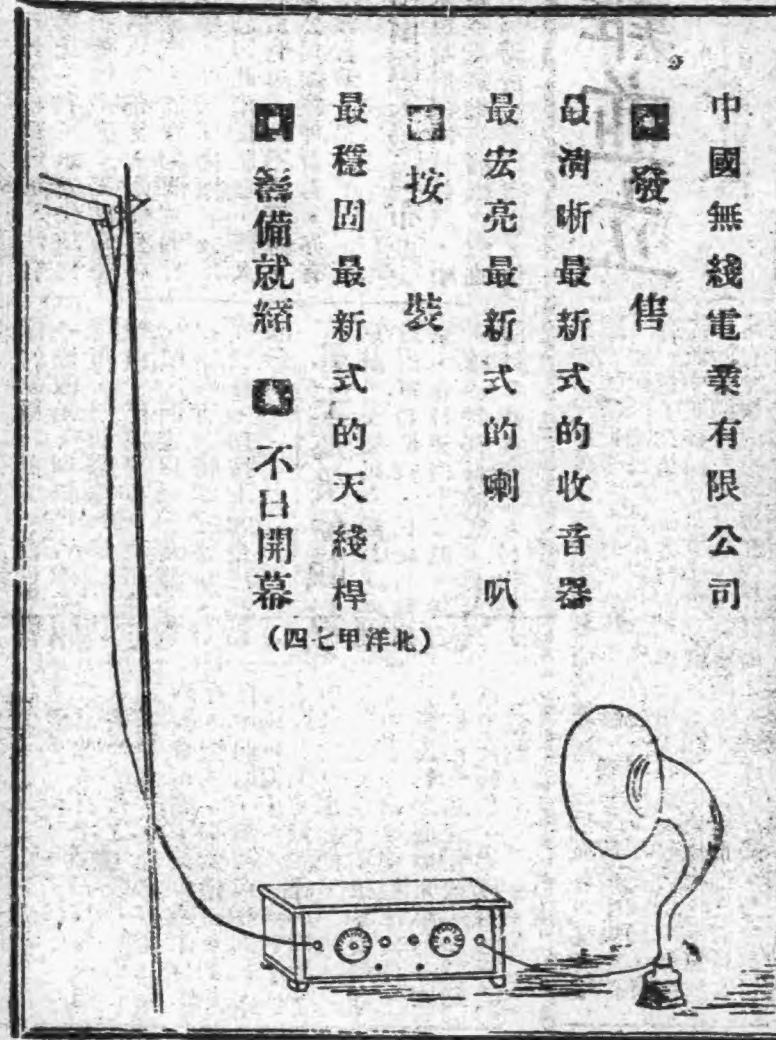 中國無綫電業有限公司
發售
最清晰最新式的收音器
最宏亮最新式的喇叭
按裝
最穩固最新式的天綫桿
籌備就緒 不日開幕
(四七甲洋北)